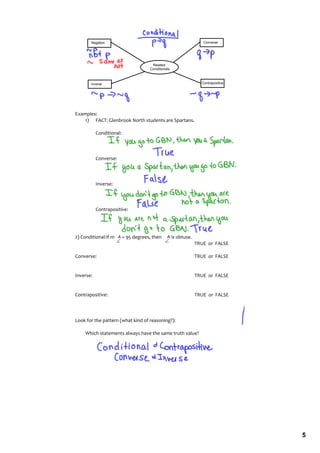 conditional
p→q
Negation
~p
not p
~ same as not
Converse
q→p
Related
Conditionals
Inverse
~p→~q
Contrapositive
~q→~p
Examples:
1) FACT: Glenbrook North students are Spartans.
Conditional:
If you go to GBN, then you a Spartan.
True
Converse:
If you a Spartan, then you go to GBN.
False
Inverse:
If you don't go to GBN, then you are
False not a Spartan.
Contrapositive:
If you are not a spartan, then you
don't go to GBN. True
2) Conditional:If m∠A = 95 degrees, then ∠A is obtuse.
TRUE or FALSE
Converse: TRUE or FALSE
Inverse: TRUE or FALSE
Contrapositive: TRUE or FALSE
Look for the pattern (what kind of reasoning?):
Which statements always have the same truth value?
Conditional & Contrapositive
Converse & Inverse
5